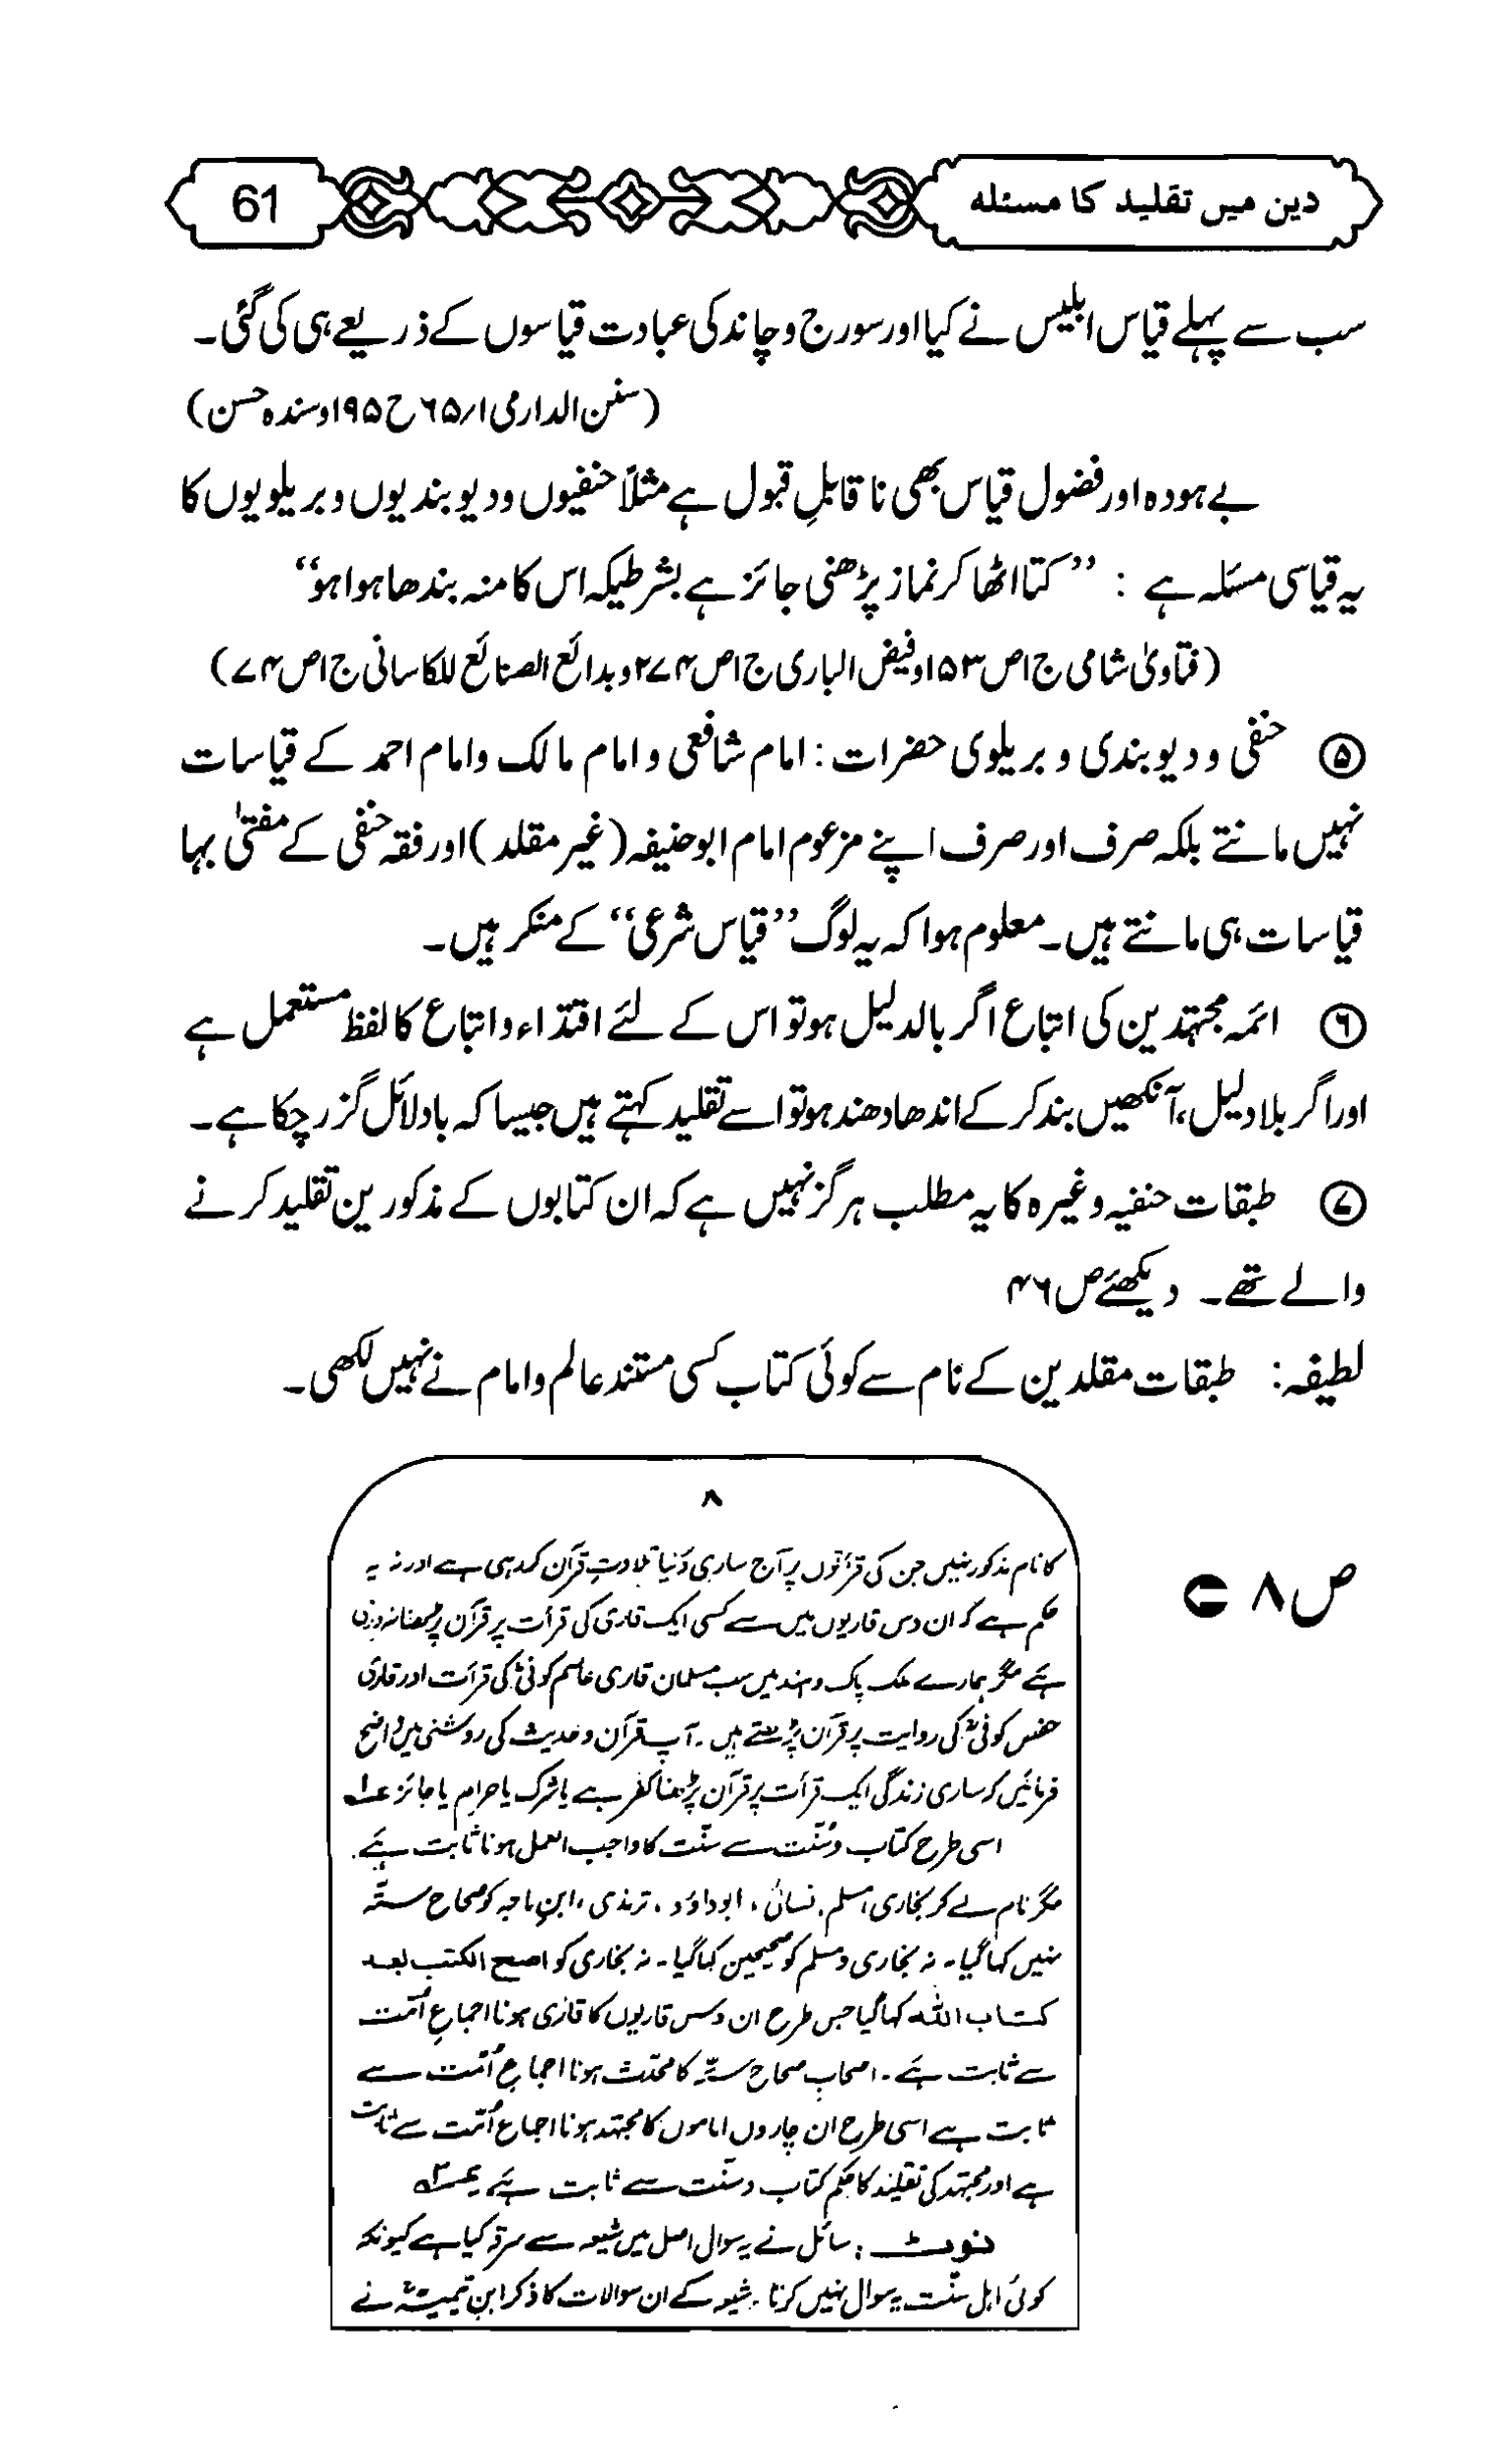 دین میں تقلید کا مسئلہ 61
سب سے پہلے قیاس ابلیس نے کیا اور سورج و چاند کی عبادت قیاسوں کے ذریعے ہی کی گئی۔
(سنن الدارمی ۱/۶۵ ح ۱۹۵ وسندہ حسن)
بے ہودہ اور فضول قیاس بھی ناقابلِ قبول ہے مثلاً حنفیوں و دیوبندیوں و بریلویوں کا
یہ قیاسی مسئلہ ہے : ’’کتا اٹھا کر نماز پڑھنی جائز ہے بشرطیکہ اس کا منہ بندھا ہوا ہو‘‘
(فتاویٰ شامی ج۱ص۱۵۳ وفیض الباری ج۱ص۲۷۴ و بدائع الصنائع للکاسانی ج۱ص۷۴)
⑤ حنفی و دیوبندی و بریلوی حضرات: امام شافعی و امام مالک وامام احمد کے قیاسات
نہیں مانتے بلکہ صرف اور صرف اپنے مزعوم امام ابوحنیفہ (غیر مقلد) اور فقہ حنفی کے مفتیٰ بہا
قیاسات ہی مانتے ہیں۔ معلوم ہوا کہ یہ لوگ ’’قیاس شرعی‘‘ کے منکر ہیں۔
⑥ ائمہ مجتہدین کی اتباع اگر بالدلیل ہو تو اس کے لئے اقتداء واتباع کا لفظ مستعمل ہے
اور اگر بلا دلیل، آنکھیں بند کر کے اندھا دھند ہو تو اسے تقلید کہتے ہیں جیسا کہ بادلائل گزر چکا ہے۔
⑦ طبقات حنفیہ وغیرہ کا یہ مطلب ہرگز نہیں ہے کہ ان کتابوں کے مذکورین تقلید کرنے
والے تھے۔ دیکھئے ص ۴۶
لطیفہ: طبقات مقلدین کے نام سے کوئی کتاب کسی مستند عالم و امام نے نہیں لکھی۔
ص ۸
۸
کا نام مذکور نہیں جن کی قرأتوں پر آج ساری دُنیا تلاوتِ قرآن کر رہی ہے اور نہ یہ
حکم ہے کہ ان دس قاریوں میں سے کسی ایک قاری کی قرأت پر قرآن پڑھنا ضروری
ہے مگر ہمارے ملک پاک و ہند میں سب مسلمان قاری عاصم کوفیؒ کی قرأت اور قاری
حفص کوفیؒ کی روایت پر قرآن پڑھتے ہیں۔ آپ قرآن و حدیث کی روشنی میں واضح
فرمائیں کہ ساری زندگی ایک قرأت پر قرآن پڑھنا کفر ہے یا شرک یا حرام یا جائز ۱؎
اسی طرح کتاب و سُنّت سے سنّت کا واجب العمل ہونا ثابت ہے۔
مگر نام لے کر بخاری، مسلم، نسائی، ابو داؤد، ترمذی، ابنِ ماجہ کو صحاح ستّہ
نہیں کہا گیا۔ نہ بخاری و مسلم کو صحیحین کہا گیا۔ نہ بخاری کو اصح الکتب بعد
کتاب اللہ کہا گیا جس طرح ان دس قاریوں کا قاری ہونا اجماعِ اُمّت
سے ثابت ہے۔ اصحابِ صحاح ستّہ کا محدّث ہونا اجماعِ اُمّت سے
ثابت ہے اسی طرح ان چاروں اماموں کا مجتہد ہونا اجماع اُمّت سے ثابت
ہے اور مجتہد کی تقلید کا حکم کتاب و سنّت سے ثابت ہے
نوٹ: سائل نے یہ سوال اصل میں شیعہ سے سرقہ کیا ہے کیونکہ
کوئی اہل سنّت یہ سوال نہیں کرتا۔ شیعہ کے ان سوالات کا ذکر ابنِ تیمیہؒ نے